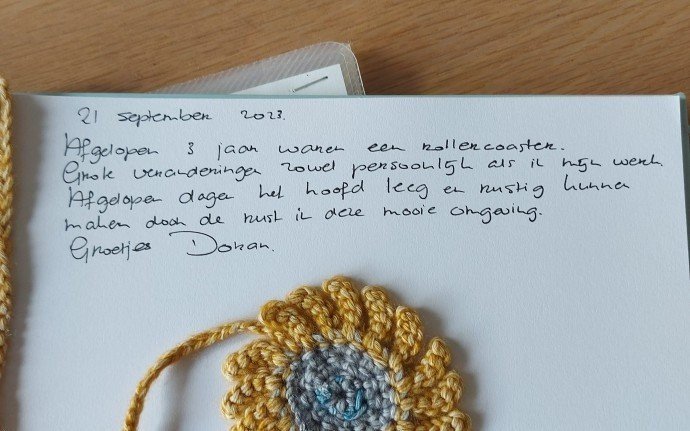 21 september 2023.
Afgelopen 3 jaar waren een rollercoaster.
Grote veranderingen zowel persoonlijk als in mijn werk.
Afgelopen dagen het hoofd leeg en rustig kunnen
maken door de rust in deze mooie omgeving.
Groetjes Dohan.